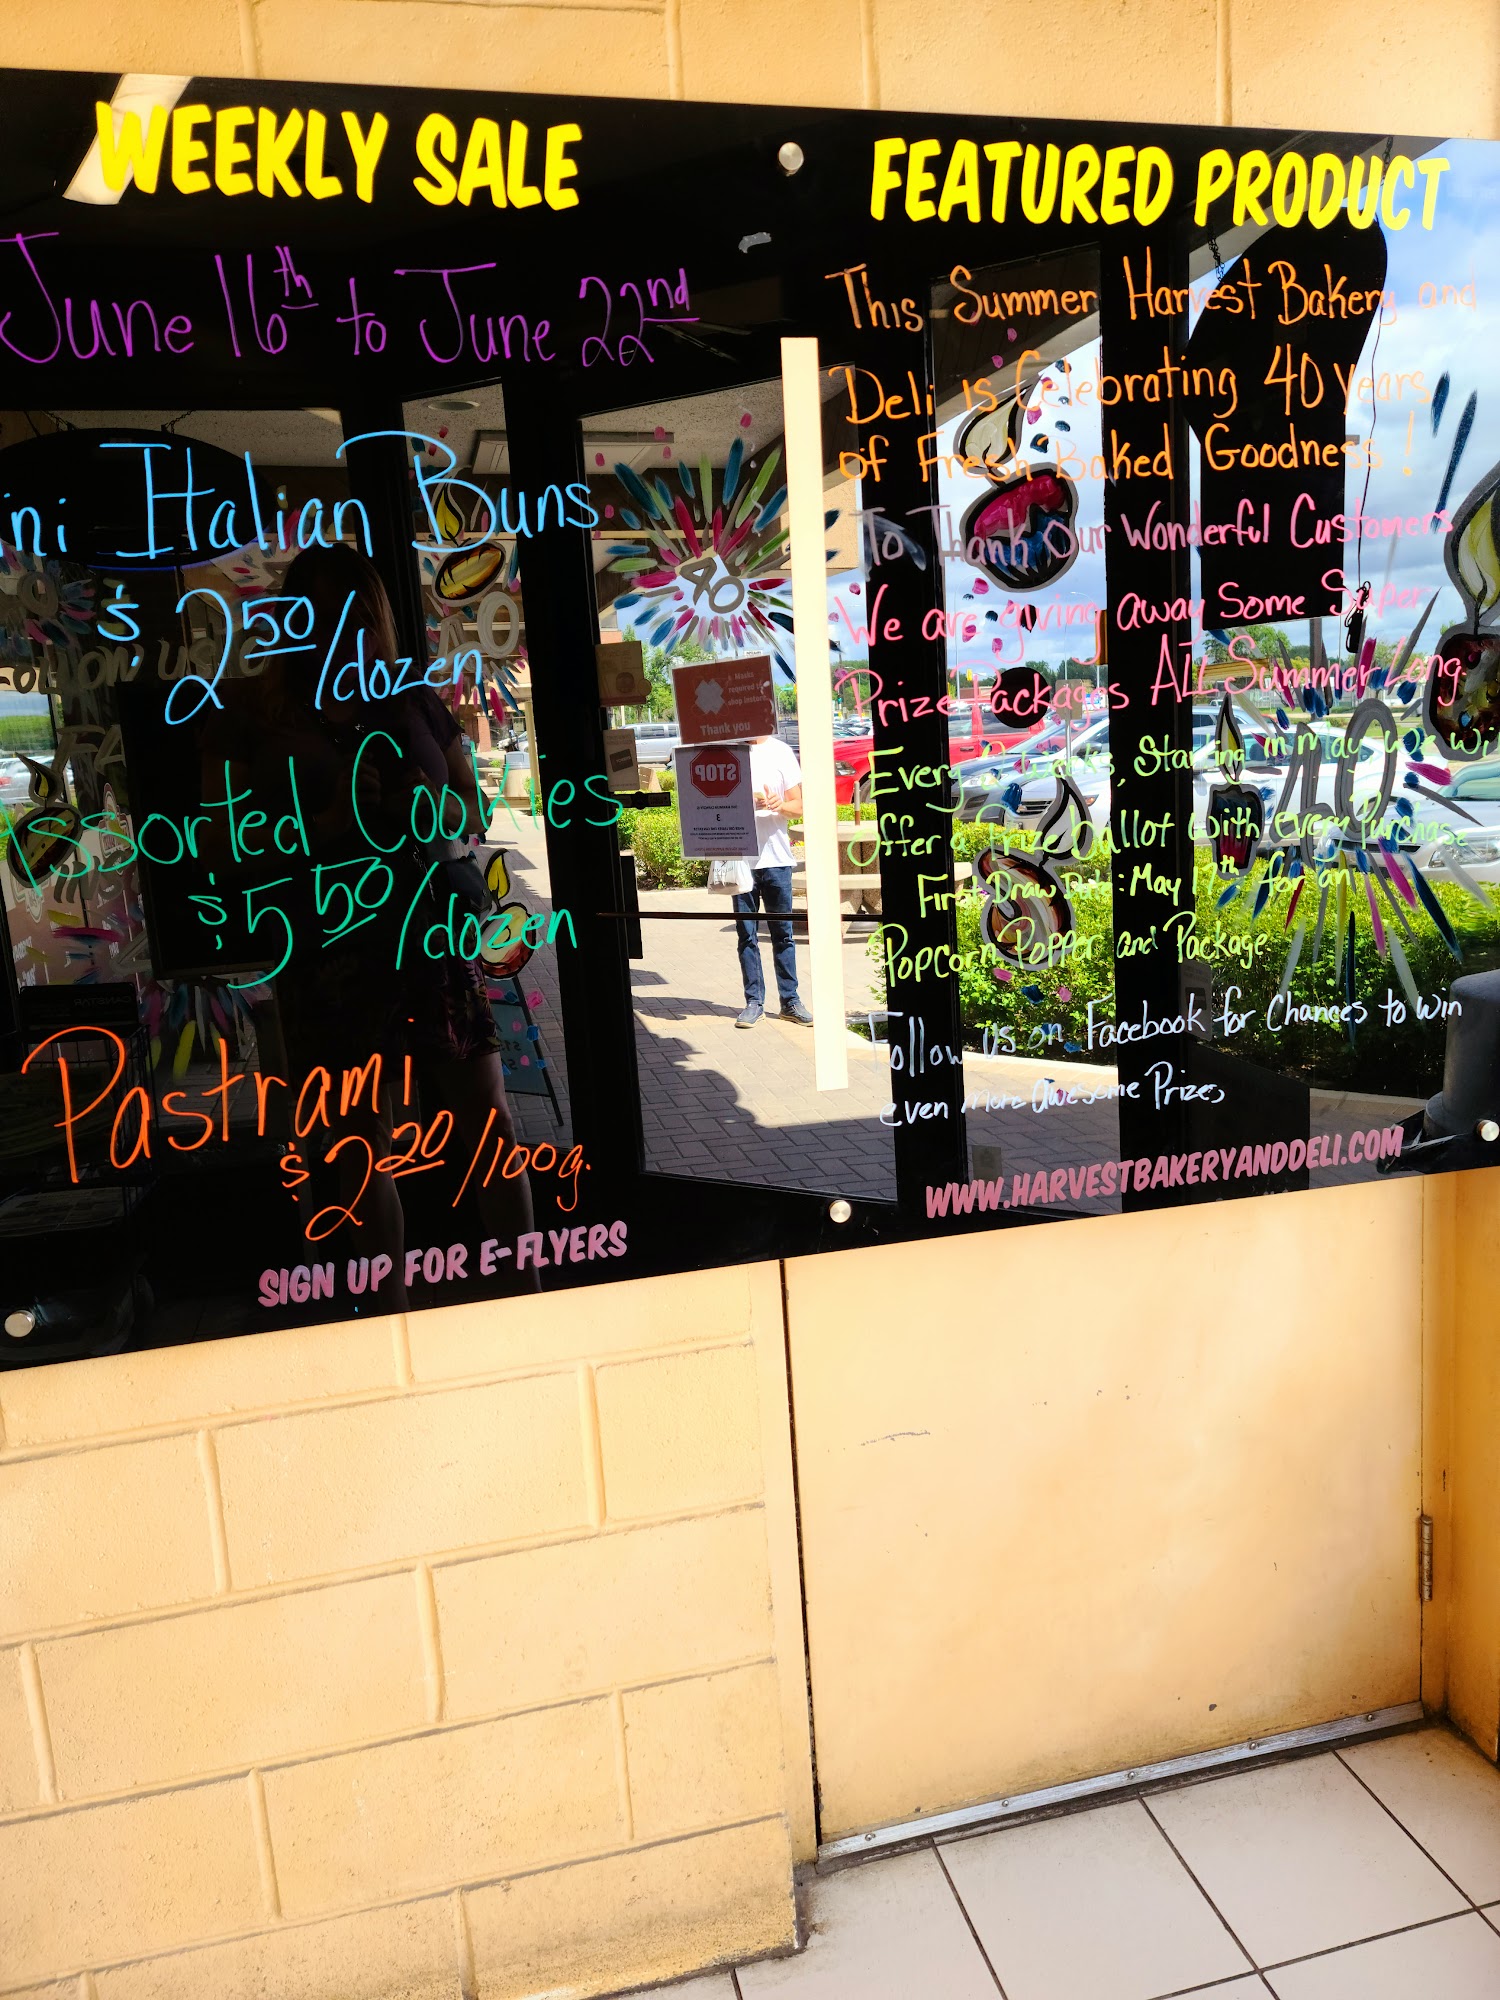 WEEKLY SALE
June 16th to June 22nd
ini Italian Buns
$2.50/dozen
Assorted Cookies
$5.50/dozen
Pastrami
$2.20/100g.
SIGN UP FOR E-FLYERS
FEATURED PRODUCT
This Summer Harvest Bakery and
Deli is Celebrating 40 years
of Fresh Baked Goodness!
To Thank Our Wonderful Customers
We are giving away Some Super
Prize Packages All Summer Long.
Every 2 weeks, Starting in May we wi
offer a Prize ballot with every Purchase
First Draw Date: May 17th for an
Popcorn Popper and Package
Follow us on Facebook for Chances to win
even more awesome Prizes
WWW.HARVESTBAKERYANDDELI.COM
40
FOLLOW US
Masks
required to
shop instore
Thank you
STOP